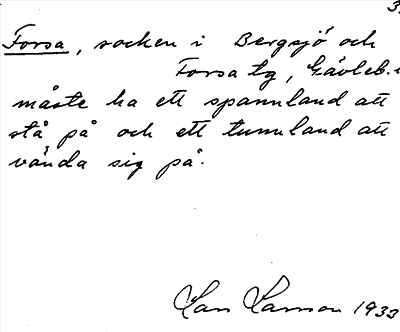 3
Forsa, socken i Bergsjö och
Forsa tg, Gävleb.
måste ha ett spannland att
stå på och ett tunnland att
vända sig på.
Lars Larsson 1933